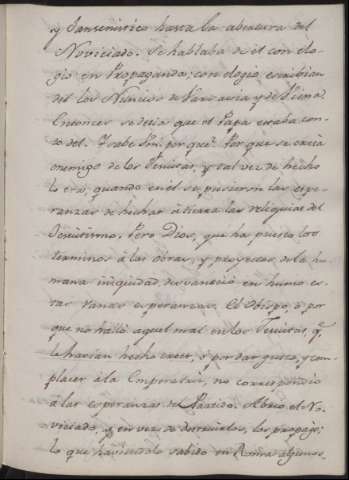 y Jansenistico hasta la abertura del
Noviciado. Se hablaba de èl con elo-
gio en Propaganda; con elogio escribian
del los Nuncios de Varsavia y de Viena.
Entonces se decia que el Papa estaba con-
tento del. Y sabe Vm. por que? Por que se creia
enemigo de los Jesuitas, y tal vez de hecho
lo era, quando en èl se pusieron las espe-
ranzas de hechar à tierra las reliquias del
Jesuitismo. Pero Dios, que ha puesto los
terminos à las obras, y proyectos de la hu-
mana iniquidad desvaneciò en humo es-
tas vanas esperanzas. El Obispo, ò por
que no hallò aquel mal en los Jesuitas, q.
le havian hecho creer, ò por dar gusto, y com-
placer à la Emperatriz, no correspondiò
à las esperanzas del Partido. Abriò el No-
viciado, y en vez de destruirlos, los propagò;
lo que haviendolo sabido en Roma algunos